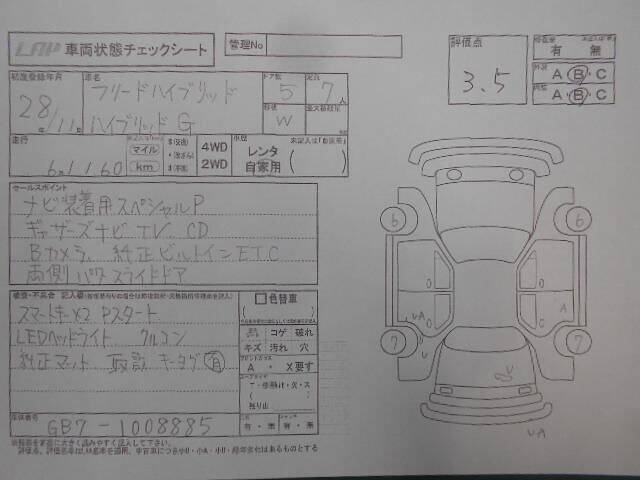 LAP 車両状態チェックシート
管理No
評価点
3.5
有 無
A・B・C
A・B・C
初度登録年月
28年/11月
車名
フリードハイブリッド
ハイブリッド G
ドア数
5
定員
7人
形状
W
最大積載量
走行
6x1160
マイル
km
4WD
2WD
車歴
レンタ
自家用
( )
セールスポイント
ナビ装着用スペシャルP
ギャザーズナビ TV CD
Bカメラ 純正ビルトインETC
両側パワスライドドア
スマートキーX2 Pスタート
LEDヘッドライト クルコン
純正マット 取説 キータグ 有
色替車
( )
コゲ 破れ
キズ 汚れ 穴
フロントガラス
A ・ X要す
( )
残り山
車体番号
GB7-1008885
有・無
有・無
6
6
7
7
A
UA
U
U
UA